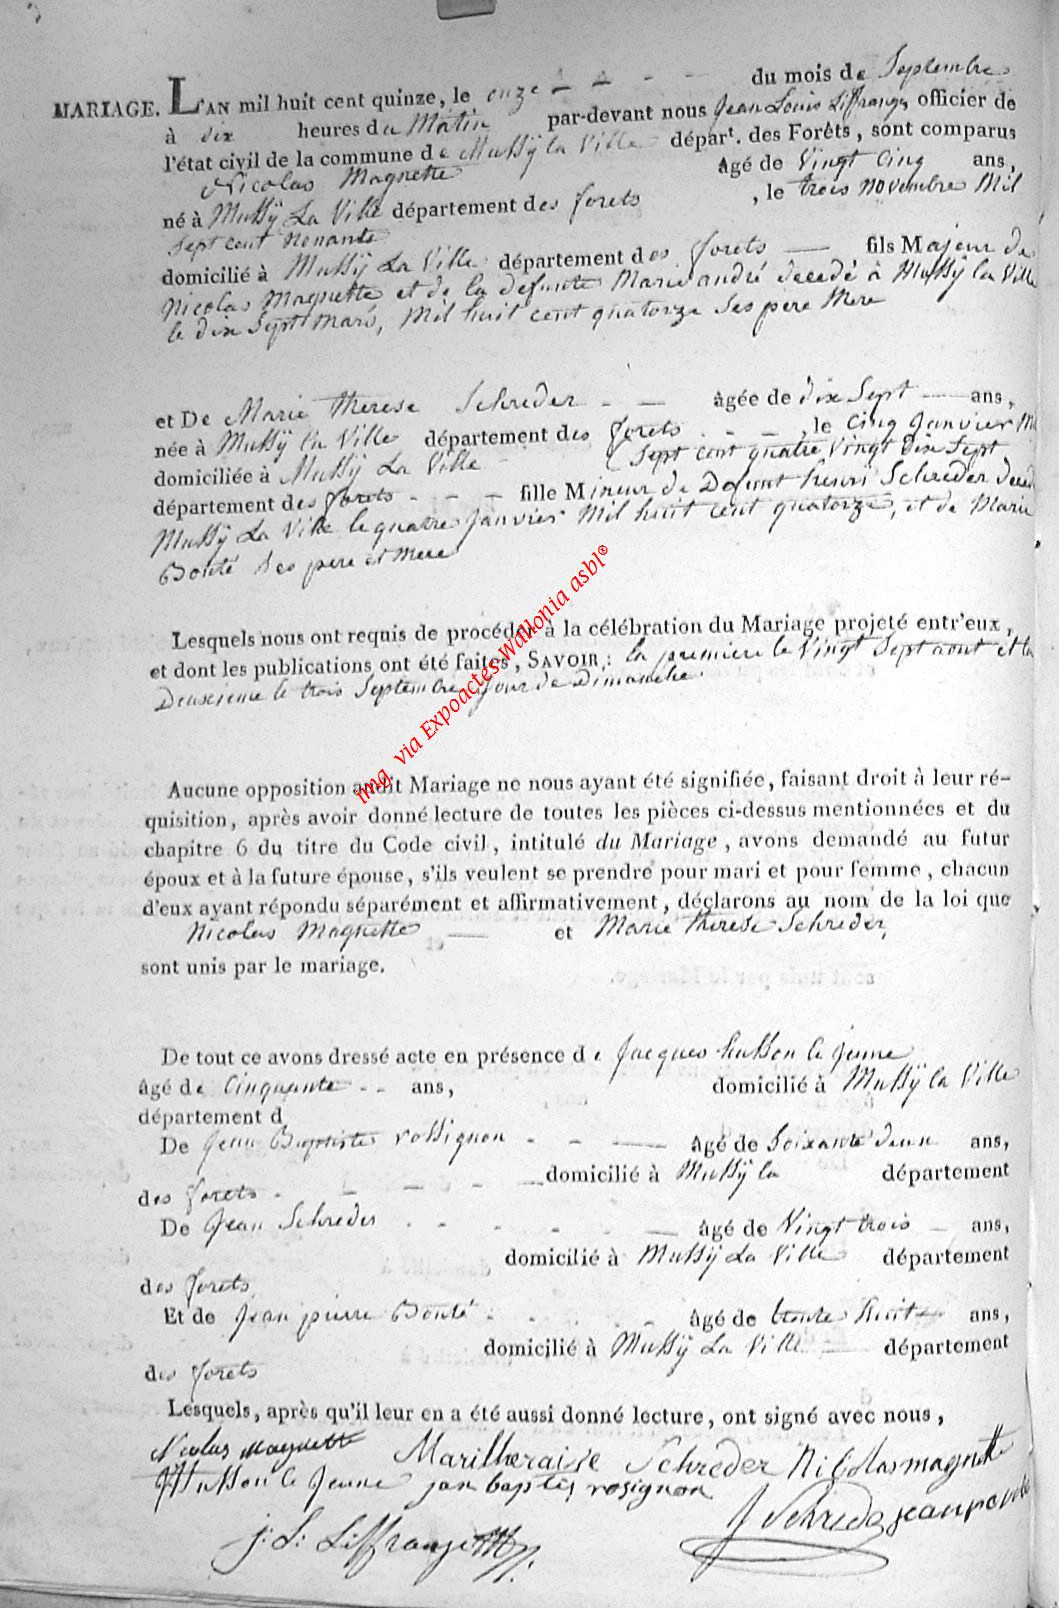 MARIAGE. L'AN mil huit cent quinze, le onze du mois de Septembre
à dix heures du Matin par-devant nous Jean Louis Liffrange officier de
l'état civil de la commune de Mussÿ la Ville départ. des Forêts, sont comparus
Nicolas Magnette âgé de Vingt Cinq ans,
né à Mussÿ La Ville département des forets, le trois novembre Mil
Sept cent nonante
domicilié à Mussÿ La Ville département des forets fils Majeur de
Nicolas Magnette et de la defunte Marie andré decedé à Mussÿ la Ville
le dix Sept Mars, Mil huit cent quatorze Ses pere Mere
et De Marie Therese Schreder âgée de dix Sept ans,
née à Mussÿ la Ville département des forets, le Cinq Janvier Mil
Sept cent quatre Vingt Dix Sept
domiciliée à Mussÿ La Ville
département des forets fille Mineur de Defunt henri Schreder
Mussÿ La Ville le quatre Janvier Mil huit cent quatorze, et de Marie
Bonté Ses pere et Mere
Lesquels nous ont requis de procéder à la célébration du Mariage projeté entr'eux,
et dont les publications ont été faites, SAVOIR : la premiere le Vingt Sept aout et la
Deuxieme le trois Septembre Jour de Dimanche.
img via Expoactes-Wallonia asbl®
Aucune opposition audit Mariage ne nous ayant été signifiée, faisant droit à leur ré-
quisition, après avoir donné lecture de toutes les pièces ci-dessus mentionnées et du
chapitre 6 du titre du Code civil, intitulé du Mariage, avons demandé au futur
époux et à la future épouse, s'ils veulent se prendre pour mari et pour femme, chacun
d'eux ayant répondu séparément et affirmativement, déclarons au nom de la loi que
Nicolas Magnette et Marie Therese Schreder,
sont unis par le mariage.
De tout ce avons dressé acte en présence de Jacques husson le Jeune
âgé de Cinquante ans, domicilié à Mussÿ la Ville
département d
De Jean Baptiste rossignon âgé de Soixante deux ans,
domicilié à Mussÿ la département
des forets
De Jean Schreder âgé de Vingt trois ans,
domicilié à Mussÿ La Ville département
des forets
Et de Jean pierre Bonté âgé de trente huit ans,
domicilié à Mussÿ La Ville département
des forets
Lesquels, après qu'il leur en a été aussi donné lecture, ont signé avec nous,
Nicolas magnette Marithéraise Schreder Nicolas magnette
J Husson le Jeune jan baptis rosignon
J Schreder jean
j: L: Liffrange